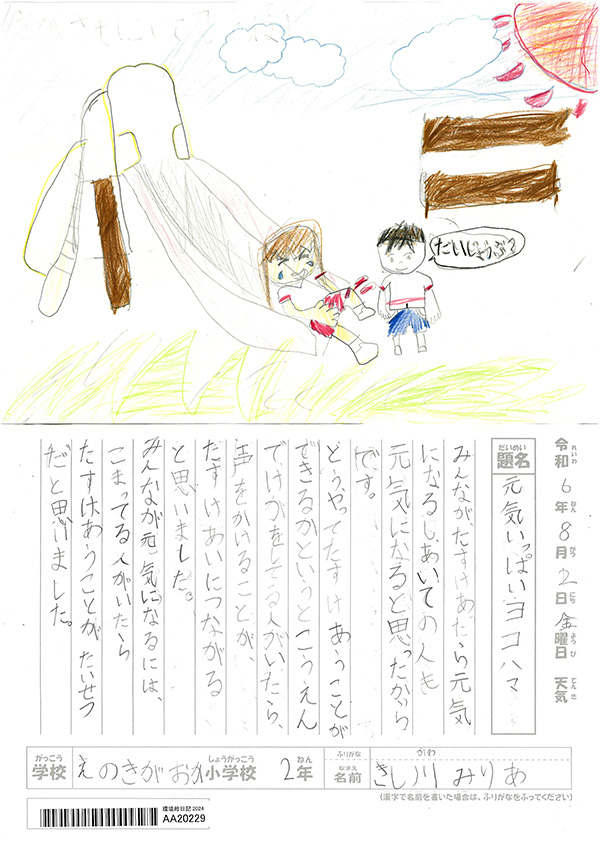 だいじょうぶ?
令和6年8月2日金曜日 天気
れいわ ねん がつ にち ようび てんき
題名
だいめい
元気いっぱいヨコハマ
みんなが、たすけあったら元気
になるし、あいての人も
元気になると思ったから
です。
どうやってたすけあうことが
できるかというとこうえん
で、けがをしてる人がいたら、
声をかけることが、
たすけあいにつながる
と思いました。
みんなが元気になるには、
こまってる人がいたら
たすけあうことがたいせつ
だと思いました。
がっこう しょうがっこう ねん ふりがな かわ
学校 えのきがおか小学校 2年 名前 きし川みりあ
なまえ
(漢字で名前を書いた場合は、ふりがなをふってください)
環境絵日記2024
AA20229